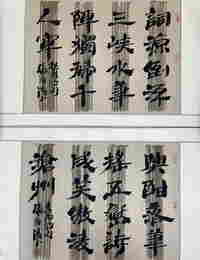 詞源倒流
三峽水筆
陣獨掃千
人軍
興酣落筆
搖五嶽詩
成笑傲凌
滄州